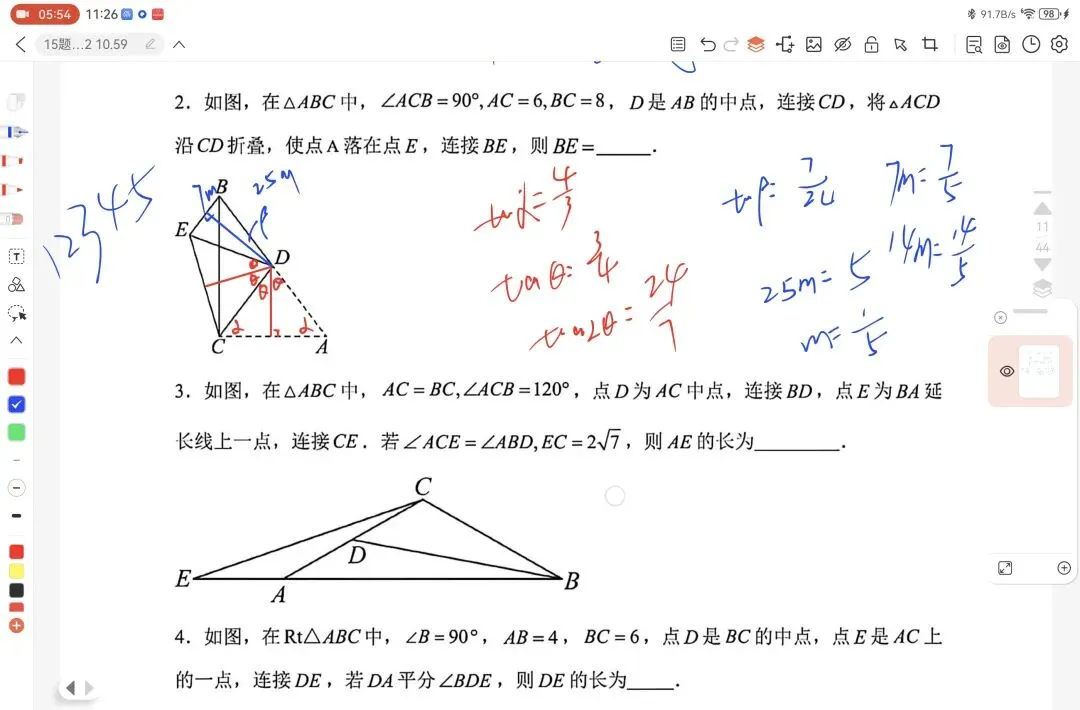 05:54 11:26 91.7B/s 98
15题...2 10.59
2. 如图，在△ABC中，∠ACB=90°, AC=6, BC=8，D是AB的中点，连接CD，将△ACD
沿CD折叠，使点A落在点E，连接BE，则BE=_____.
12345
7m B 25m
E β D
θ θ θ θ
α α
C A
tanα=4/3
tanθ=3/4
tan2θ=24/7
tanβ=7/24
7m=7/5
25m=5
14m=14/5
m=1/5
11
44
3. 如图，在△ABC中，AC=BC,∠ACB=120°，点D为AC中点，连接BD，点E为BA延
长线上一点，连接CE．若∠ACE=∠ABD, EC=2√7，则AE的长为_________.
C
D
E A B
4. 如图，在Rt△ABC中，∠B=90°，AB=4，BC=6，点D是BC的中点，点E是AC上
的一点，连接DE，若DA平分∠BDE，则DE的长为_____.